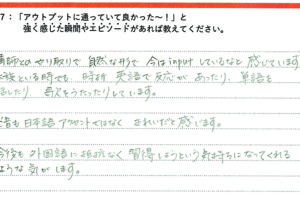 7:「アウトプットに通っていて良かった〜!」と
強く感じた瞬間やエピソードがあれば教えてください。
講師とのやり取りで自然な形で今はinputしているなと感じています
族といる時でも、時折英語で反応があったり、単語を
話したり、歌をうたったりしています。
音も日本語アクセントではなく きれいだと感います。
今後も外国語に抵抗なく習得しようという気持ちになってくれる
ような気がします。